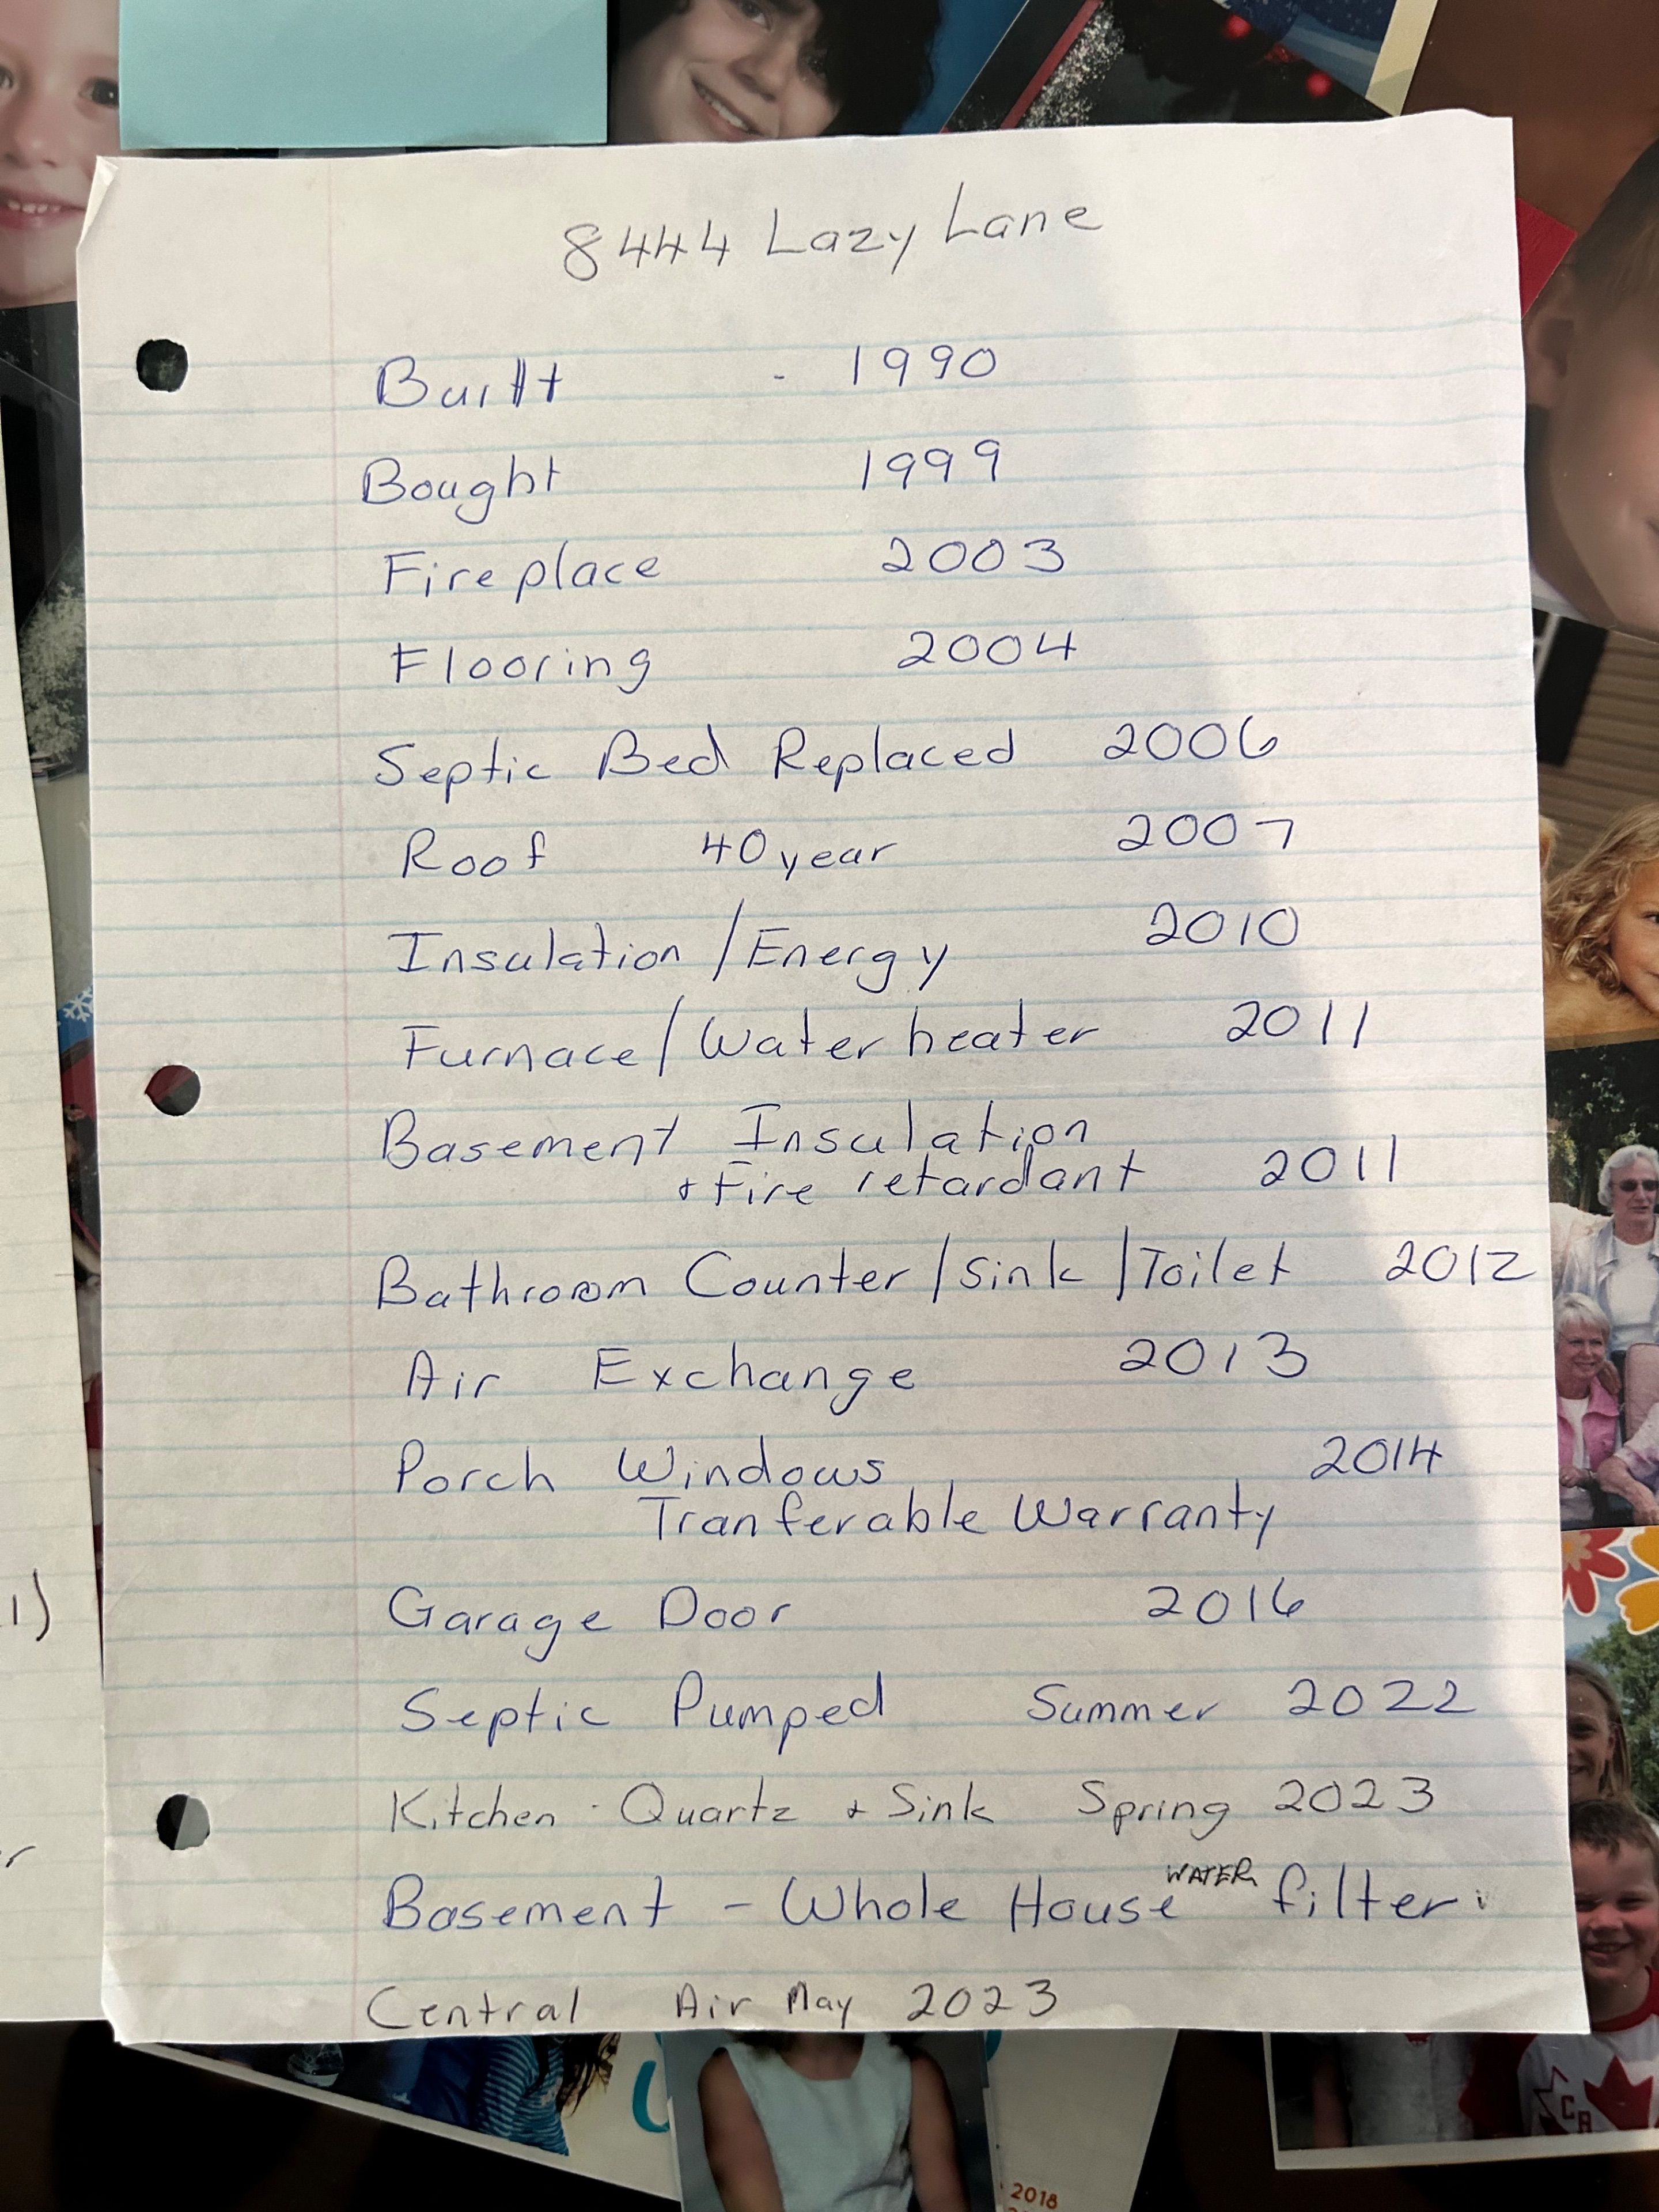 8444 Lazy Lane
Built - 1990
Bought 1999
Fireplace 2003
Flooring 2004
Septic Bed Replaced 2006
Roof 40 year 2007
Insulation / Energy 2010
Furnace / Water heater 2011
Basement Insulation
+ Fire retardant 2011
Bathroom Counter / Sink / Toilet 2012
Air Exchange 2013
Porch Windows 2014
Tranferable Warranty
Garage Door 2016
Septic Pumped Summer 2022
Kitchen - Quartz + Sink Spring 2023
Basement - Whole House WATER filter
Central Air May 2023
1)
r
2018